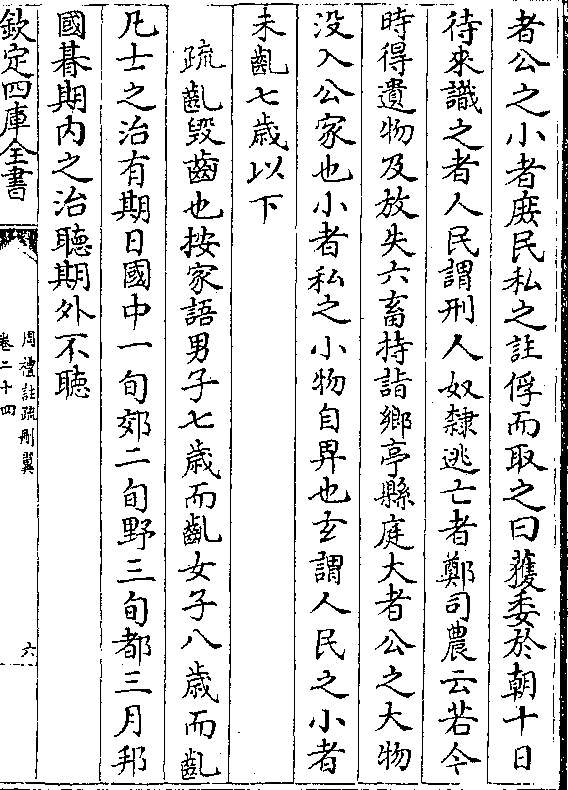 者公之小者庻民私之註俘而取之曰獲委於朝十日
待來識之者人民謂刑人奴隸逃亡者鄭司農云若今
時得遺物及放失六畜持詣鄉亭縣庭大者公之大物
没入公家也小者私之小物自畀也玄謂人民之小者
未齓七歳以下
疏齓毀齒也按家語男子七歳而齓女子八歳而齓
凡士之治有期日國中一旬郊二旬野三旬都三月邦
國朞期内之治聽期外不聽
欽定四庫全書
周禮註疏刪翼
卷二十四
六